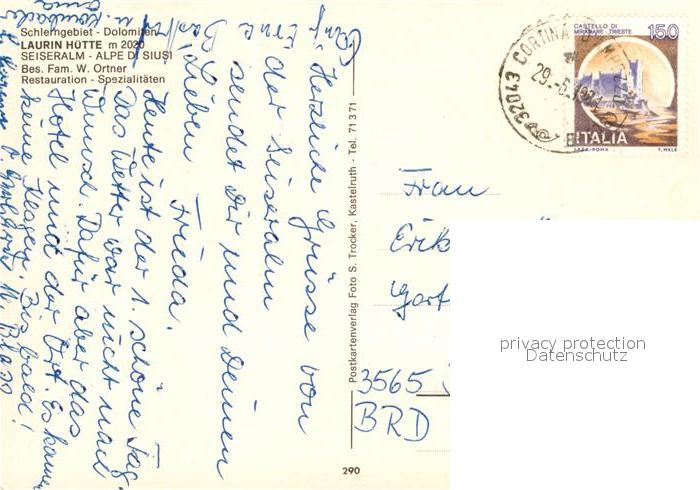 Schlerngebiet - Dolomiten
LAURIN HÜTTE m 2020
SEISERALM - ALPE DI SIUSI
Bes. Fam. W. Ortner
Restauration - Spezialitäten
Herzliche Grüsse von
der Seiseralm
sendet Dir und Deinen
Lieben Frieda.
Heute ist der 1. schöne Tag
Das Wetter war nicht nach
Wunsch. Dafür aber das
Hotel und der Ort. Es kamen
keine Klagen. Bis bald!
Postkartenverlag Foto S. Trocker, Kastelruth - Tel. 71371
290
CASTELLO DI
MIRAMARE - TRIESTE
150
ITALIA
I.P.Z.S.-ROMA T. MELE
32043 CORTINA D'AMPEZZO
29.-6.
Frau
Erik
Gart
3565
BRD
privacy protection
Datenschutz